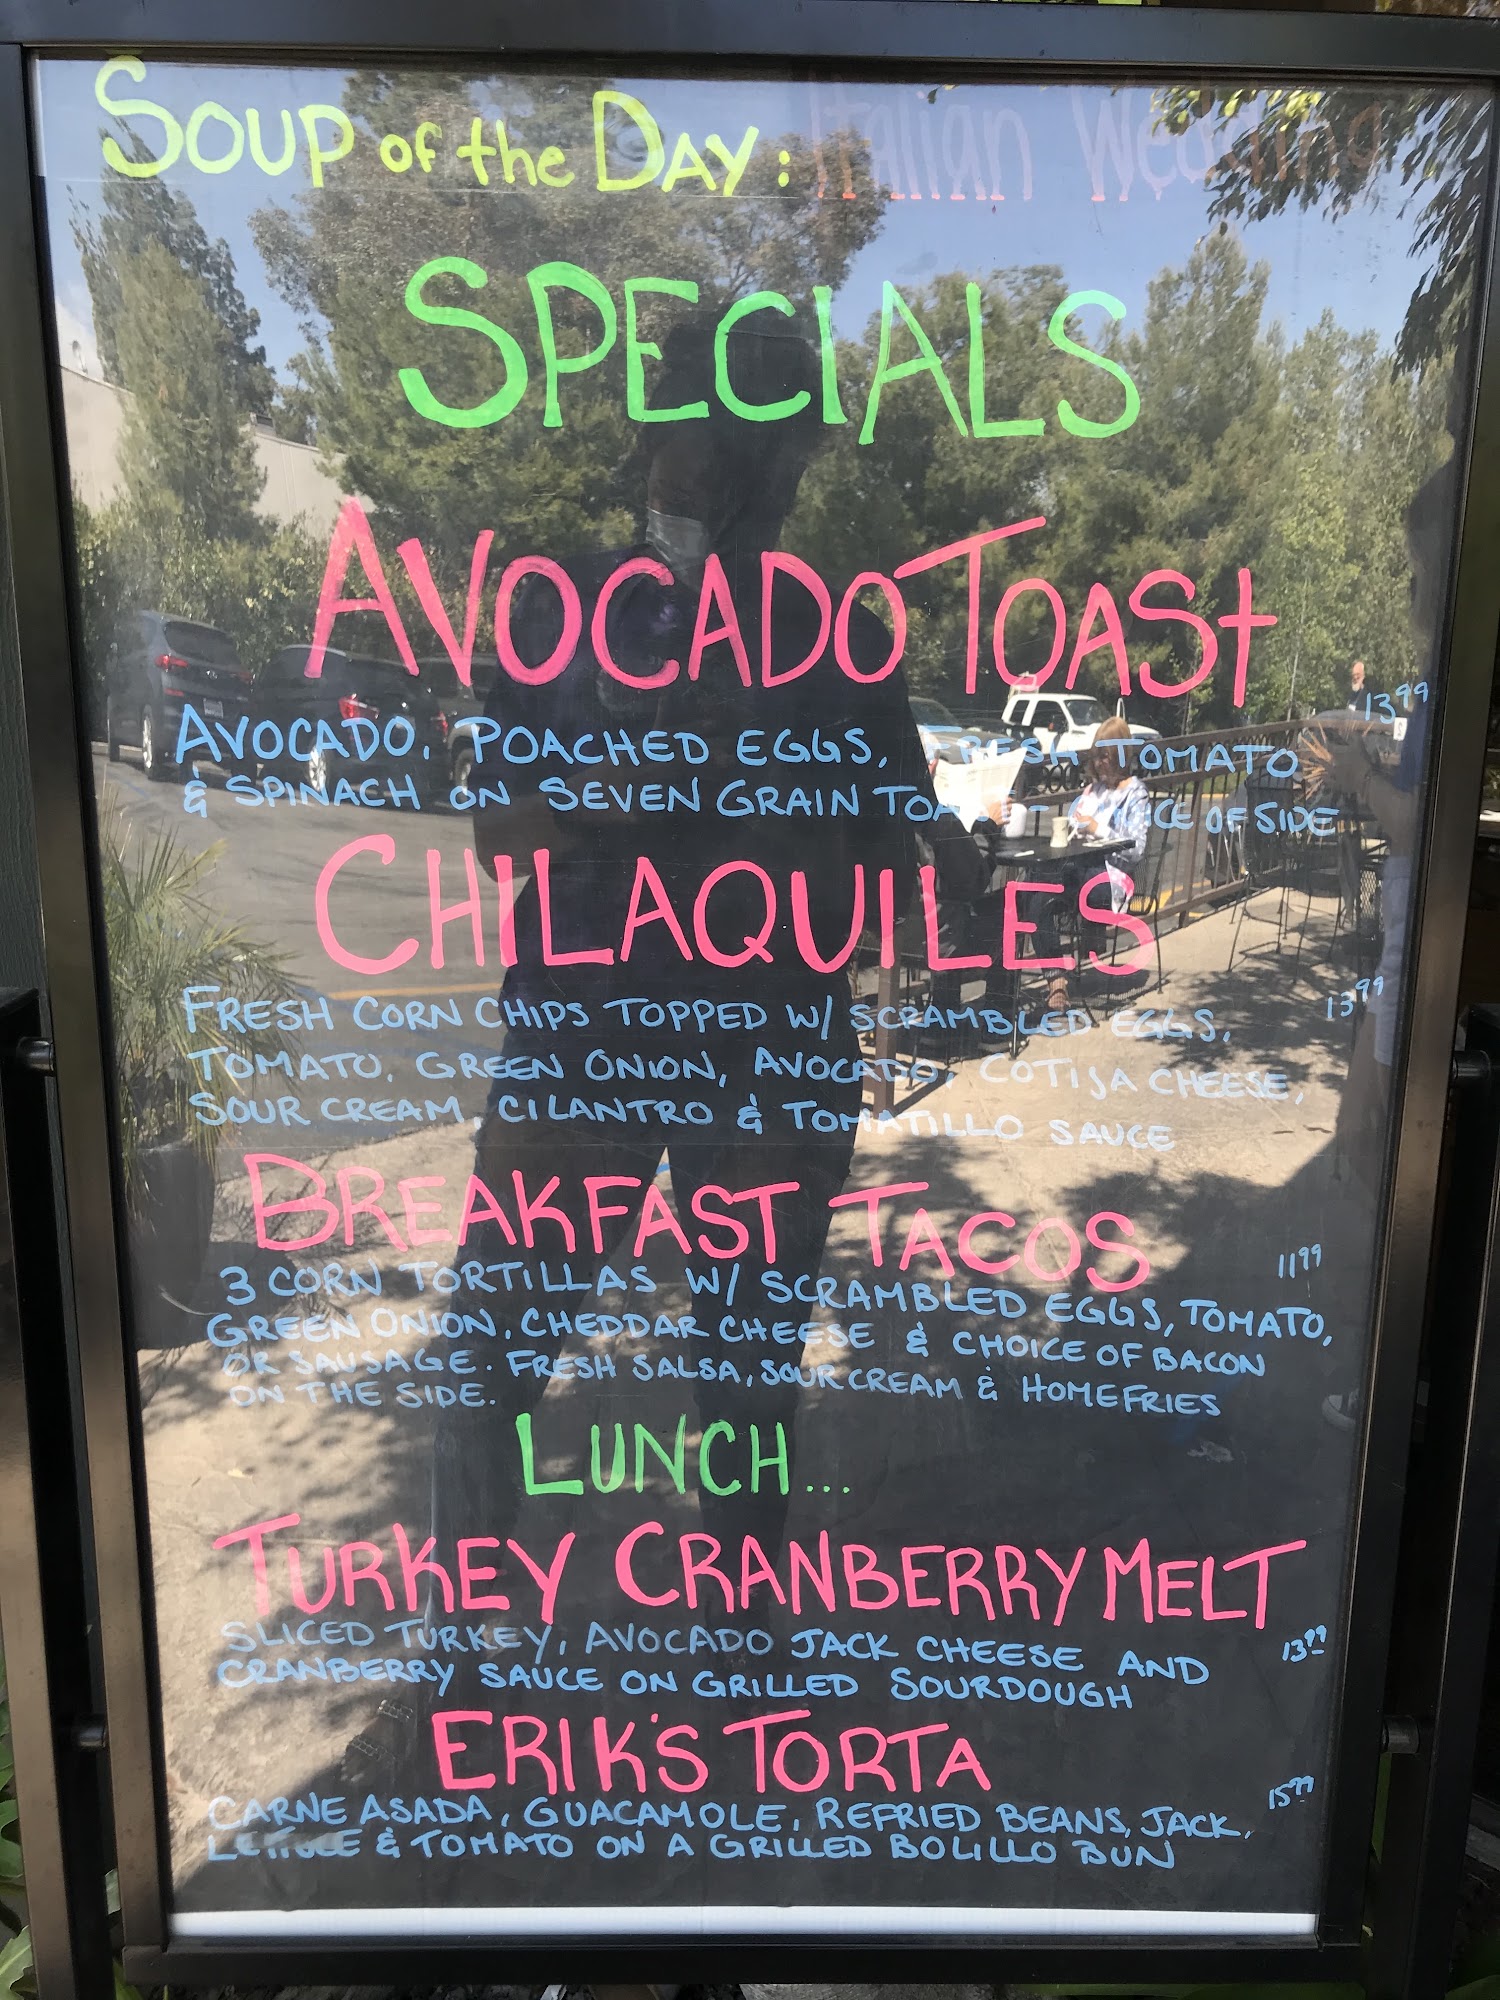 SOUP of the DAY: Italian Wedding
SPECIALS
AVOCADO TOAST
13.99
AVOCADO, POACHED EGGS, FRESH TOMATO
& SPINACH ON SEVEN GRAIN TOAST CHOICE OF SIDE
CHILAQUILES
13.99
FRESH CORN CHIPS TOPPED W/ SCRAMBLED EGGS,
TOMATO, GREEN ONION, AVOCADO, COTIJA CHEESE,
SOUR CREAM, CILANTRO & TOMATILLO SAUCE
BREAKFAST TACOS
11.99
3 CORN TORTILLAS W/ SCRAMBLED EGGS, TOMATO,
GREEN ONION, CHEDDAR CHEESE & CHOICE OF BACON
OR SAUSAGE. FRESH SALSA, SOUR CREAM & HOMEFRIES
ON THE SIDE.
LUNCH...
TURKEY CRANBERRY MELT
SLICED TURKEY, AVOCADO JACK CHEESE AND 13.99
CRANBERRY SAUCE ON GRILLED SOURDOUGH
ERIK'S TORTA
15.99
CARNE ASADA, GUACAMOLE, REFRIED BEANS, JACK,
LETTUCE & TOMATO ON A GRILLED BOLILLO BUN